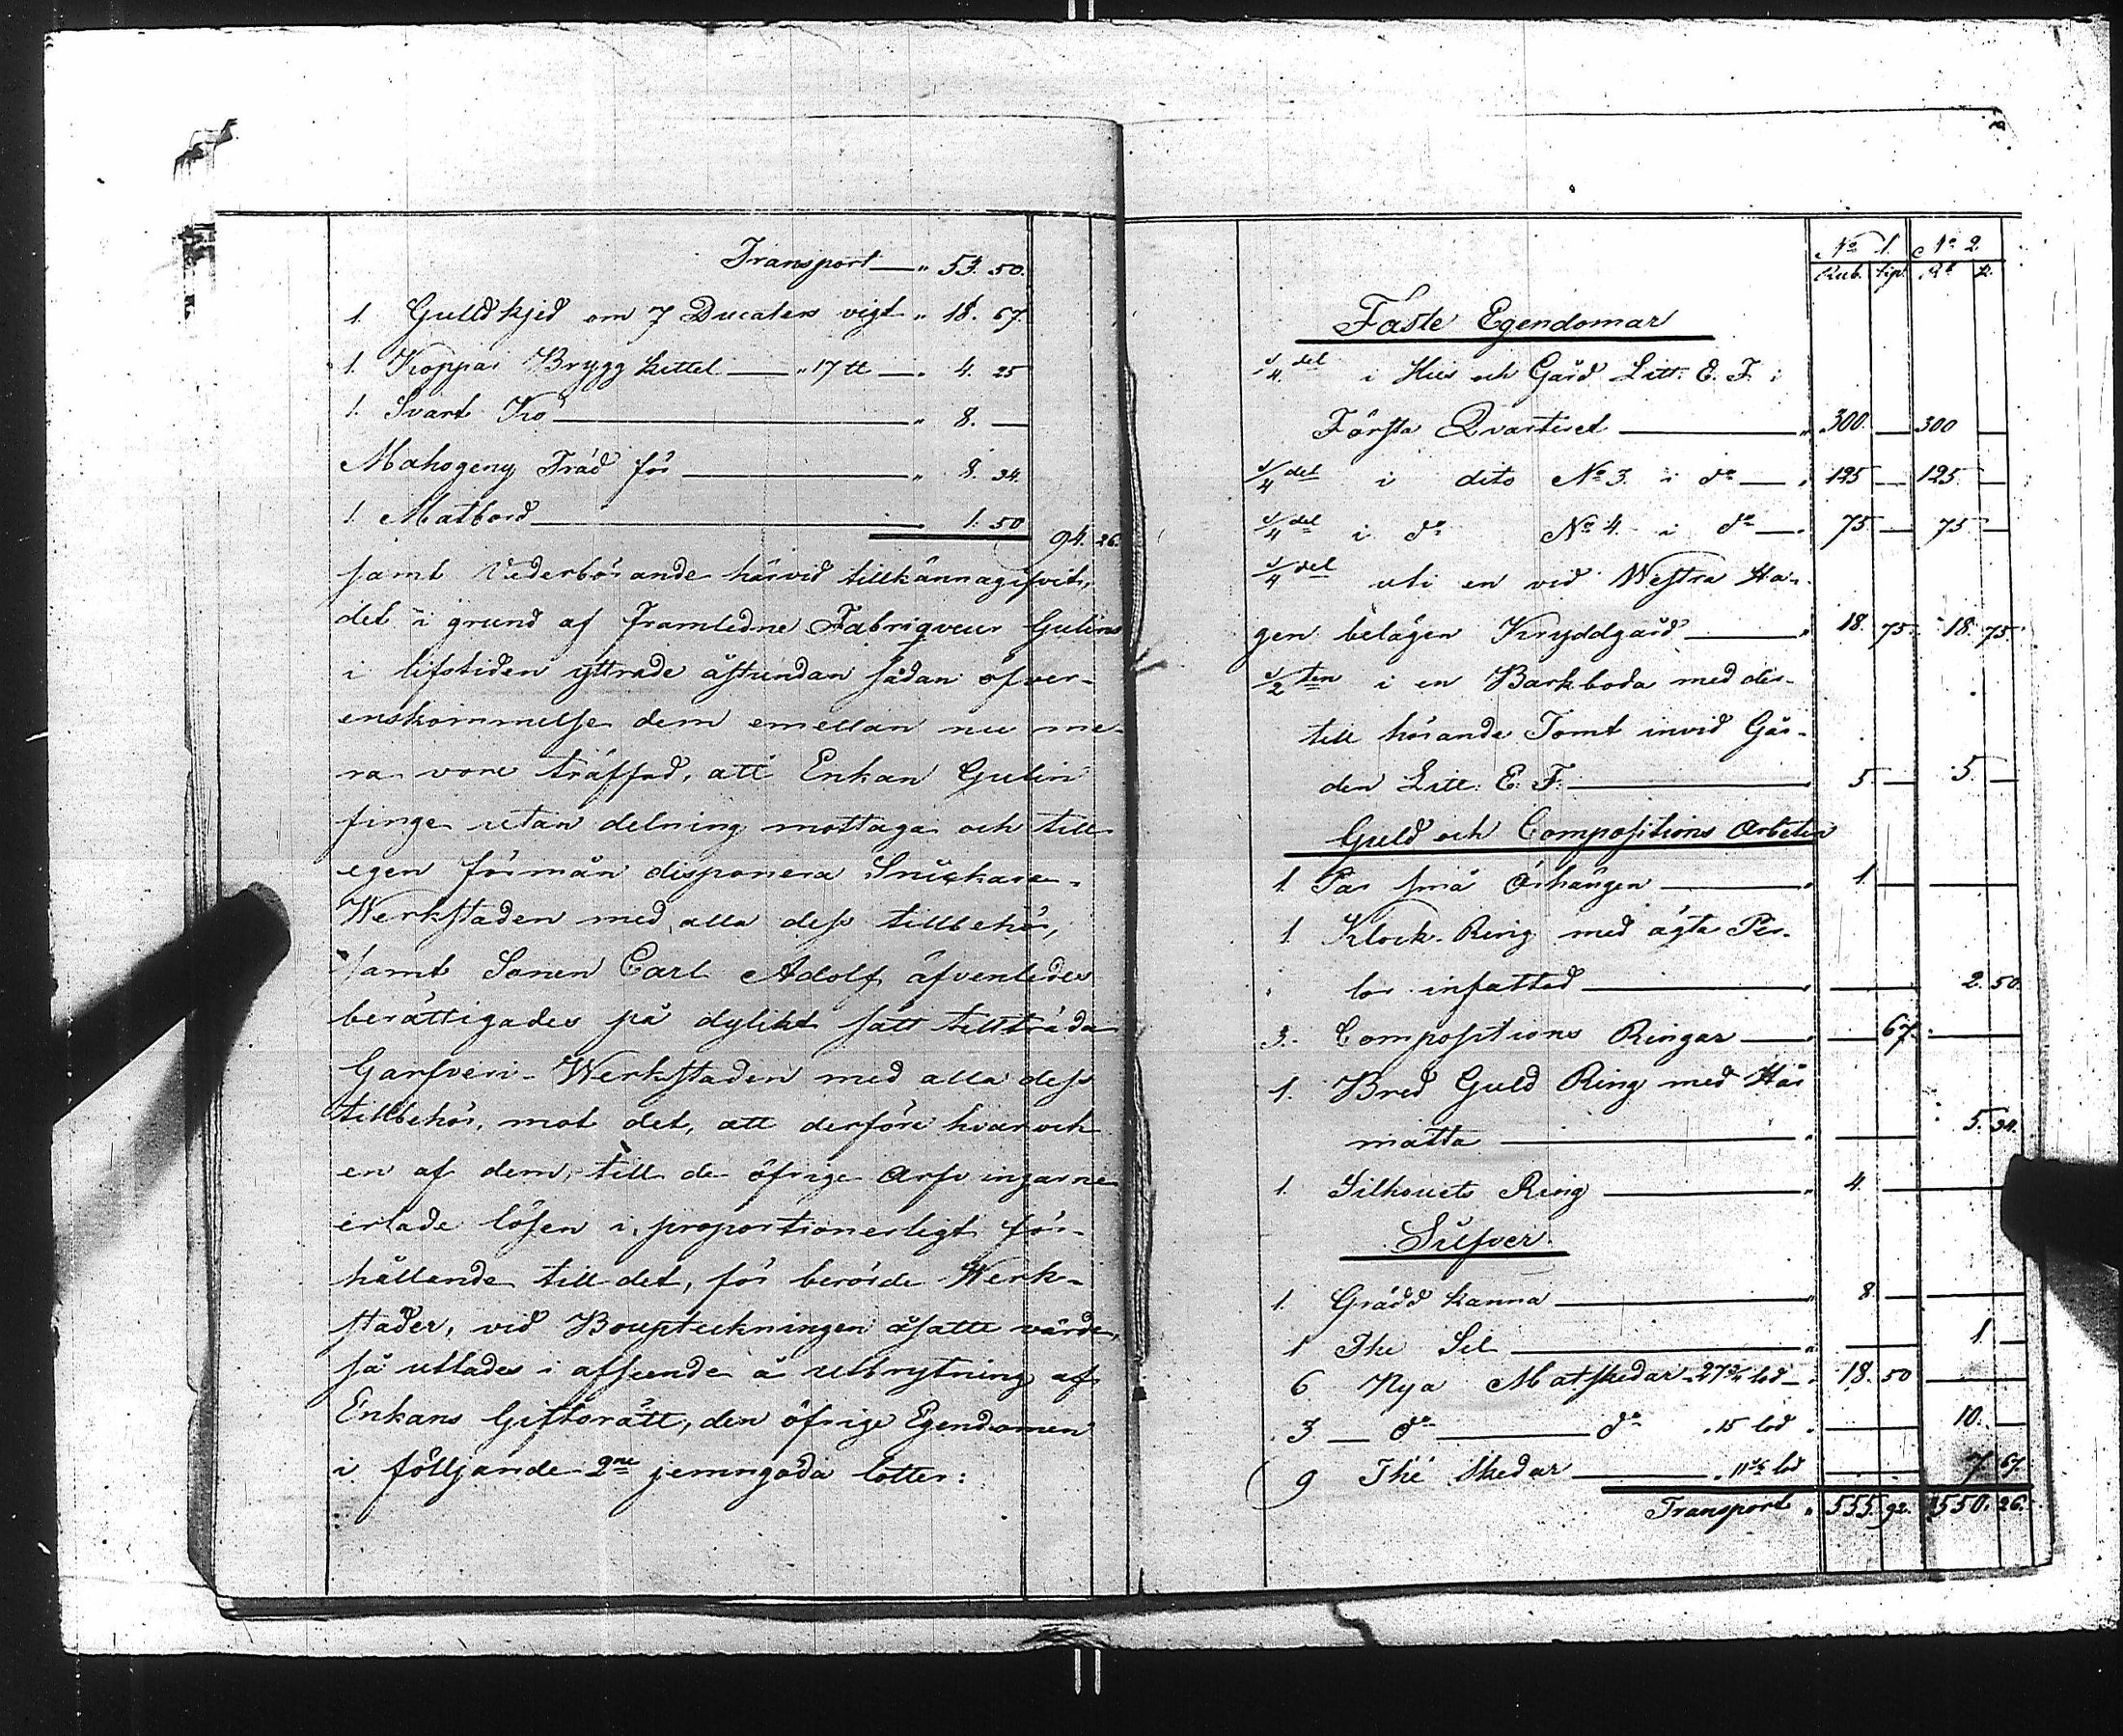 Transport — " 53. 50.
1. Gulldkjed om 7 Ducaters vigt " 18. 67.
1. Koppar Brygg kettel — " 17 tt — " 4. 25
1. Svart Ko — " 8. —
Mahogeny Träd för — " 8. 34.
1. Matbord — " 1. 50 94. 26.
samt Vederbörande härvid tillkännagifvit,
det i grund af framledne Fabriqveur Gulins
i lifstiden yttrade åstundan sådan öfver-
enskommelse dem emellan nu me-
ra vore träffad, att Enkan Gulin
finge utan delning mottaga och till
egen förmån disponera Snickare-
Werkstaden med alla dess tillbehör,
samt Sonen Carl Adolf äfvenledes
berättigades på dylikt sätt tillträda
Garfveri-Werkstaden med alla dess
tillbehör, mot det, att derföre hvar och
en af dem, till de öfrige Arfvingarne
erlade lösen i proportionerligt för-
hållande till det, för berörde Werk-
städer, vid Bouptekningen åsatte värde,
så uttades i afseende å utbrytning af
Enkans Giftorätt, den öfrige Egendomen
i följjande 2ne jemngoda lotter:
No 1. No 2.
Rub. kip. Rb k.
Faste Egendomar
1/4 del i Hus och Gård Litt: E. F. i
Första Qvarteret — " 300. — 300 —
1/4 del i dito No 3. i do — " 125 — 125. —
1/4 del i do No 4. i do — " 75. — 75. —
1/4 del uti en vid Westra Ha-
gen belägen Kryddgård — " 18. 75. 18. 75.
1/2 ten i en Barkboda med der-
till hörande Tomt invid Går-
den Litt: E. F. — 5 — 5. —
Guld och Compositions Arbeten
1. Par små Örhängen — " 1. — —
1. Klock-Ring med ägta Per-
lor infattad — " — 2. 50.
3. Compositions Ringar — " — 67. —
1. Bred Guld Ring med Hår
matta — " — 5. 34.
1. Silhouets Ring — " 4. — —
Silfver.
1. Grädd kanna — " 8. — —
1 The Sil — " — 1. —
6 Nya Matskedar 27 3/4 lod — " 18. 50 —
3 — do — do " 15 lod " — 10. —
9 Thé Skedar — " 11 lod — 7. 67.
Transport " 555. 92. 550. 26.